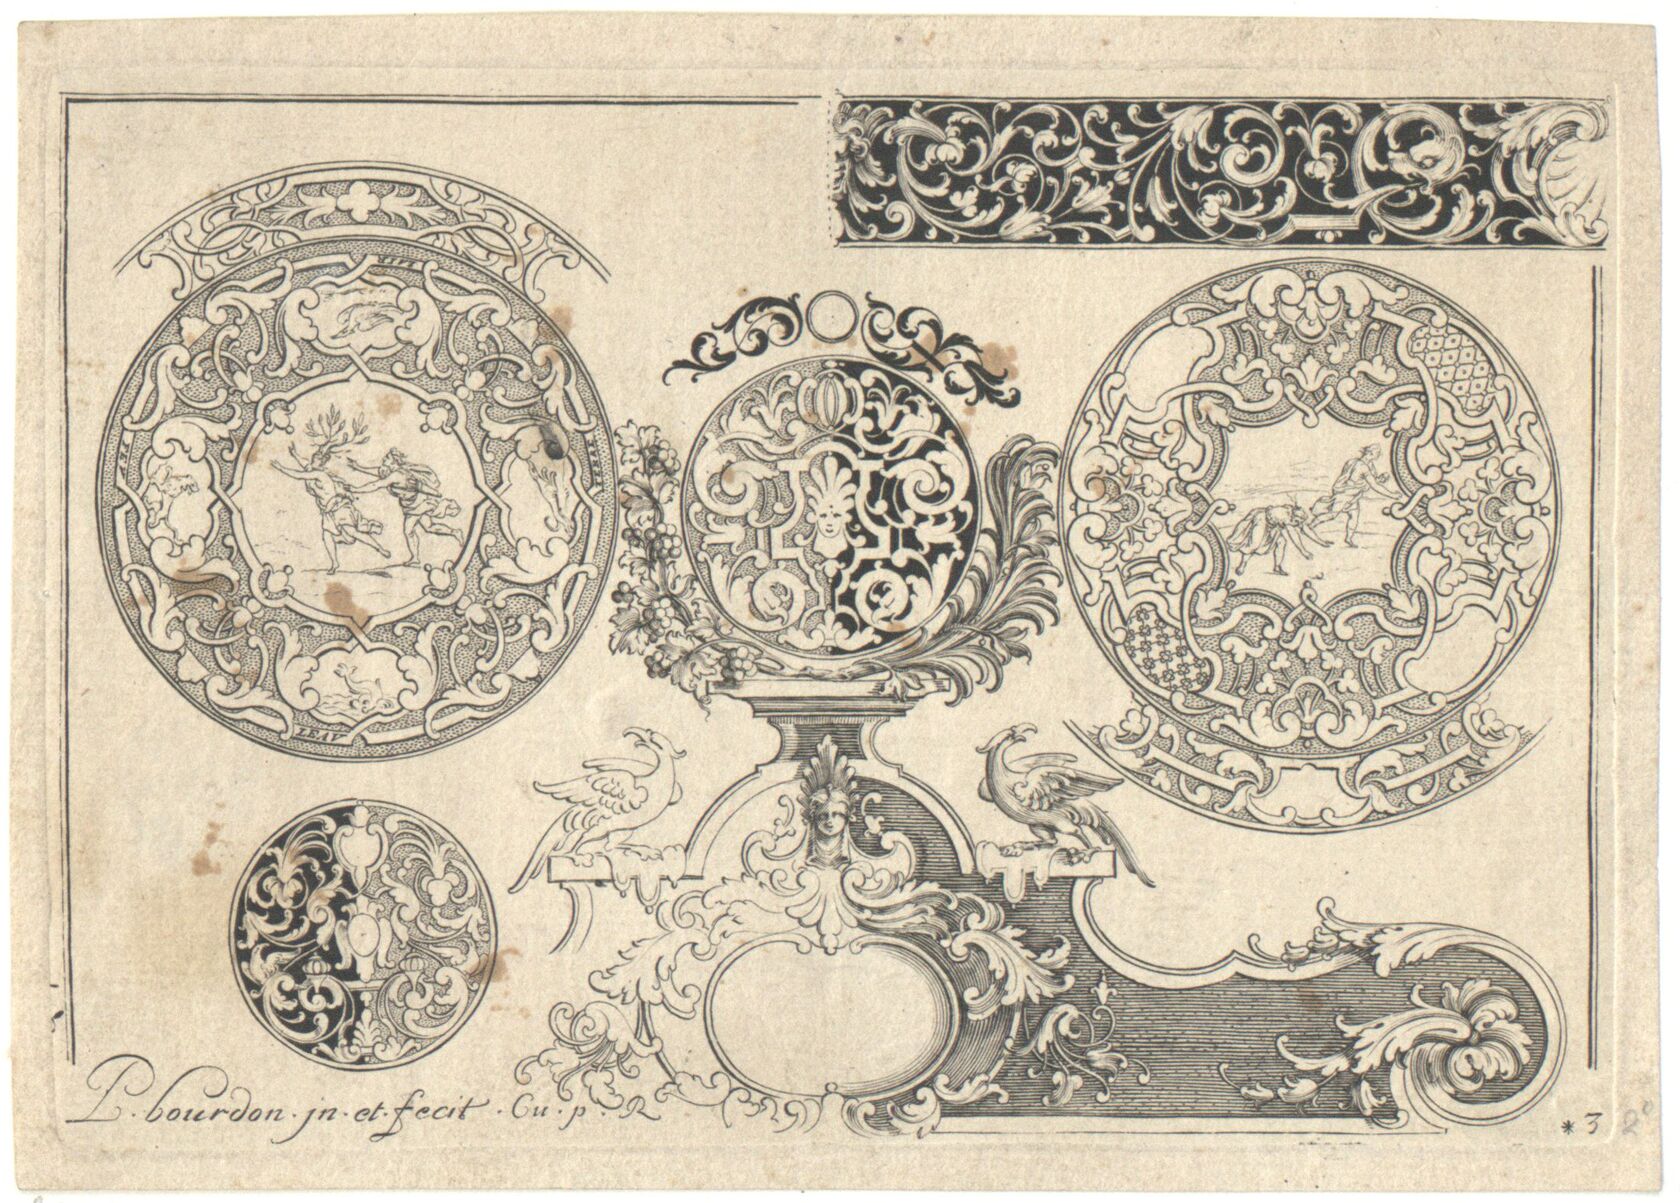 LEAV
P. bourdon · jn · et · fecit · Cu · p · R
* 3